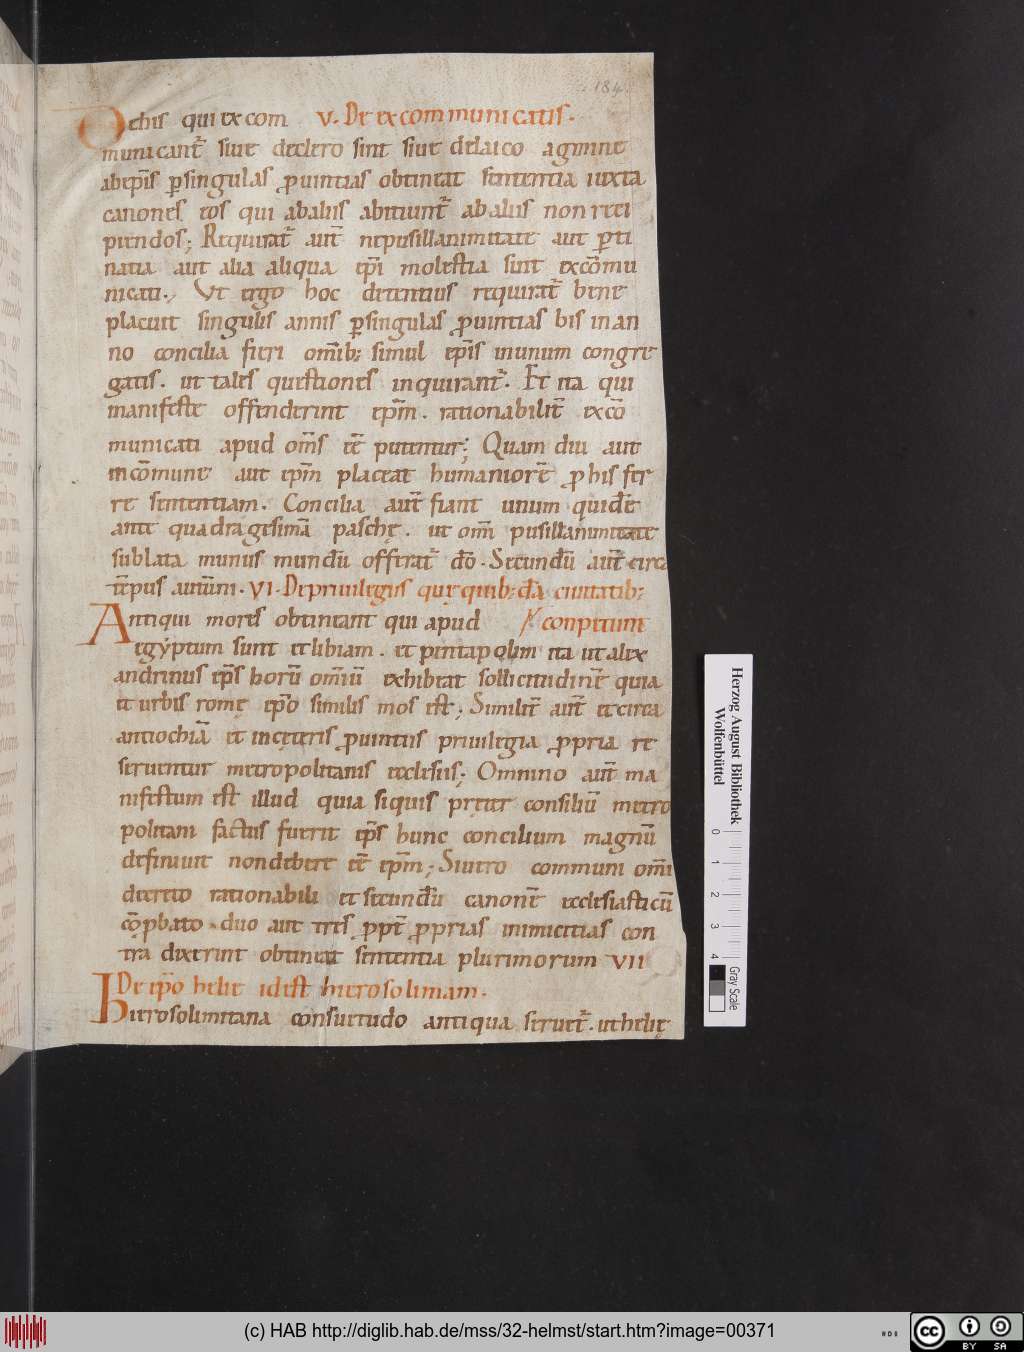 184
De his qui excom V. De excommunicatis.
municant̄ siue declero sint siue delaico agmine
abep̄is p̱singulas ꝓuintias obtineat sententia iuxta
canones eos qui abaliis abitiunt̄ ab aliis non reci
piendos; Requirat̄ aut̄ nepusillanimitate aut p̱ti
natia aut alia aliqua ep̄i molestia sint excōmu
nicati., Ut ergo hoc decentius requirat̄ bene
placuit singulis annis p̱singulas ꝓuintias bis in an
no concilia fieri om̄ib; simul ep̄is inunum congre
gatis. ut tales questiones inquirant̄. Et ita qui
manifeste offenderint ep̄m. rationabilit̄ excō
municati apud om̄s eē putentur; Quam diu aut
incōmune aut ep̄m placeat humaniorē ꝓ his fer
re sententiam. Concilia aut̄ fiant unum quidē
ante quadragesimā paschę. ut om̄ pusillanimitate
sublata munus mundū offerat̄ dō. Secundū aut̄ circa
tēpus autūm. VI. Depriuilegiis quę quib; dā ciuitatib;
Antiqui mores obtineant qui apud conpetunt
egẏptum sunt et libiam. et pentapolim ita ut alex
andrinus ep̄s horū om̄iū exhibeat sollicitudinē quia
et urbis romę ep̄o similis mos est; Similit̄ aut̄ et circa
antiochiā et incęteris ꝓuintiis priuilegia ꝓpria re
seruentur metropolitanis ecclesiis; Omnino aut̄ ma
nifestum est illud quia siquis pręter consiliū metro
politani factus fuerit ep̄s hunc concilium magnū
definiuit nondebere eē ep̄m; Siuero communi om̄i
decreto rationabili et secundū canonē ecclesiasticū
cōꝓbato duo aut tres ꝓpt̄ ꝓprias inimicitias con
tra dixerint obtineat sententia plurimorum VII
De ep̄o helie idest hierosolimam.
Hierosolimitana consuetudo antiqua seruet̄. ut helię
Herzog August Bibliothek
Wolfenbüttel
0 1 2 3 4
Gray Scale
(c) HAB http://diglib.hab.de/mss/32-helmst/start.htm?image=00371
cc BY SA